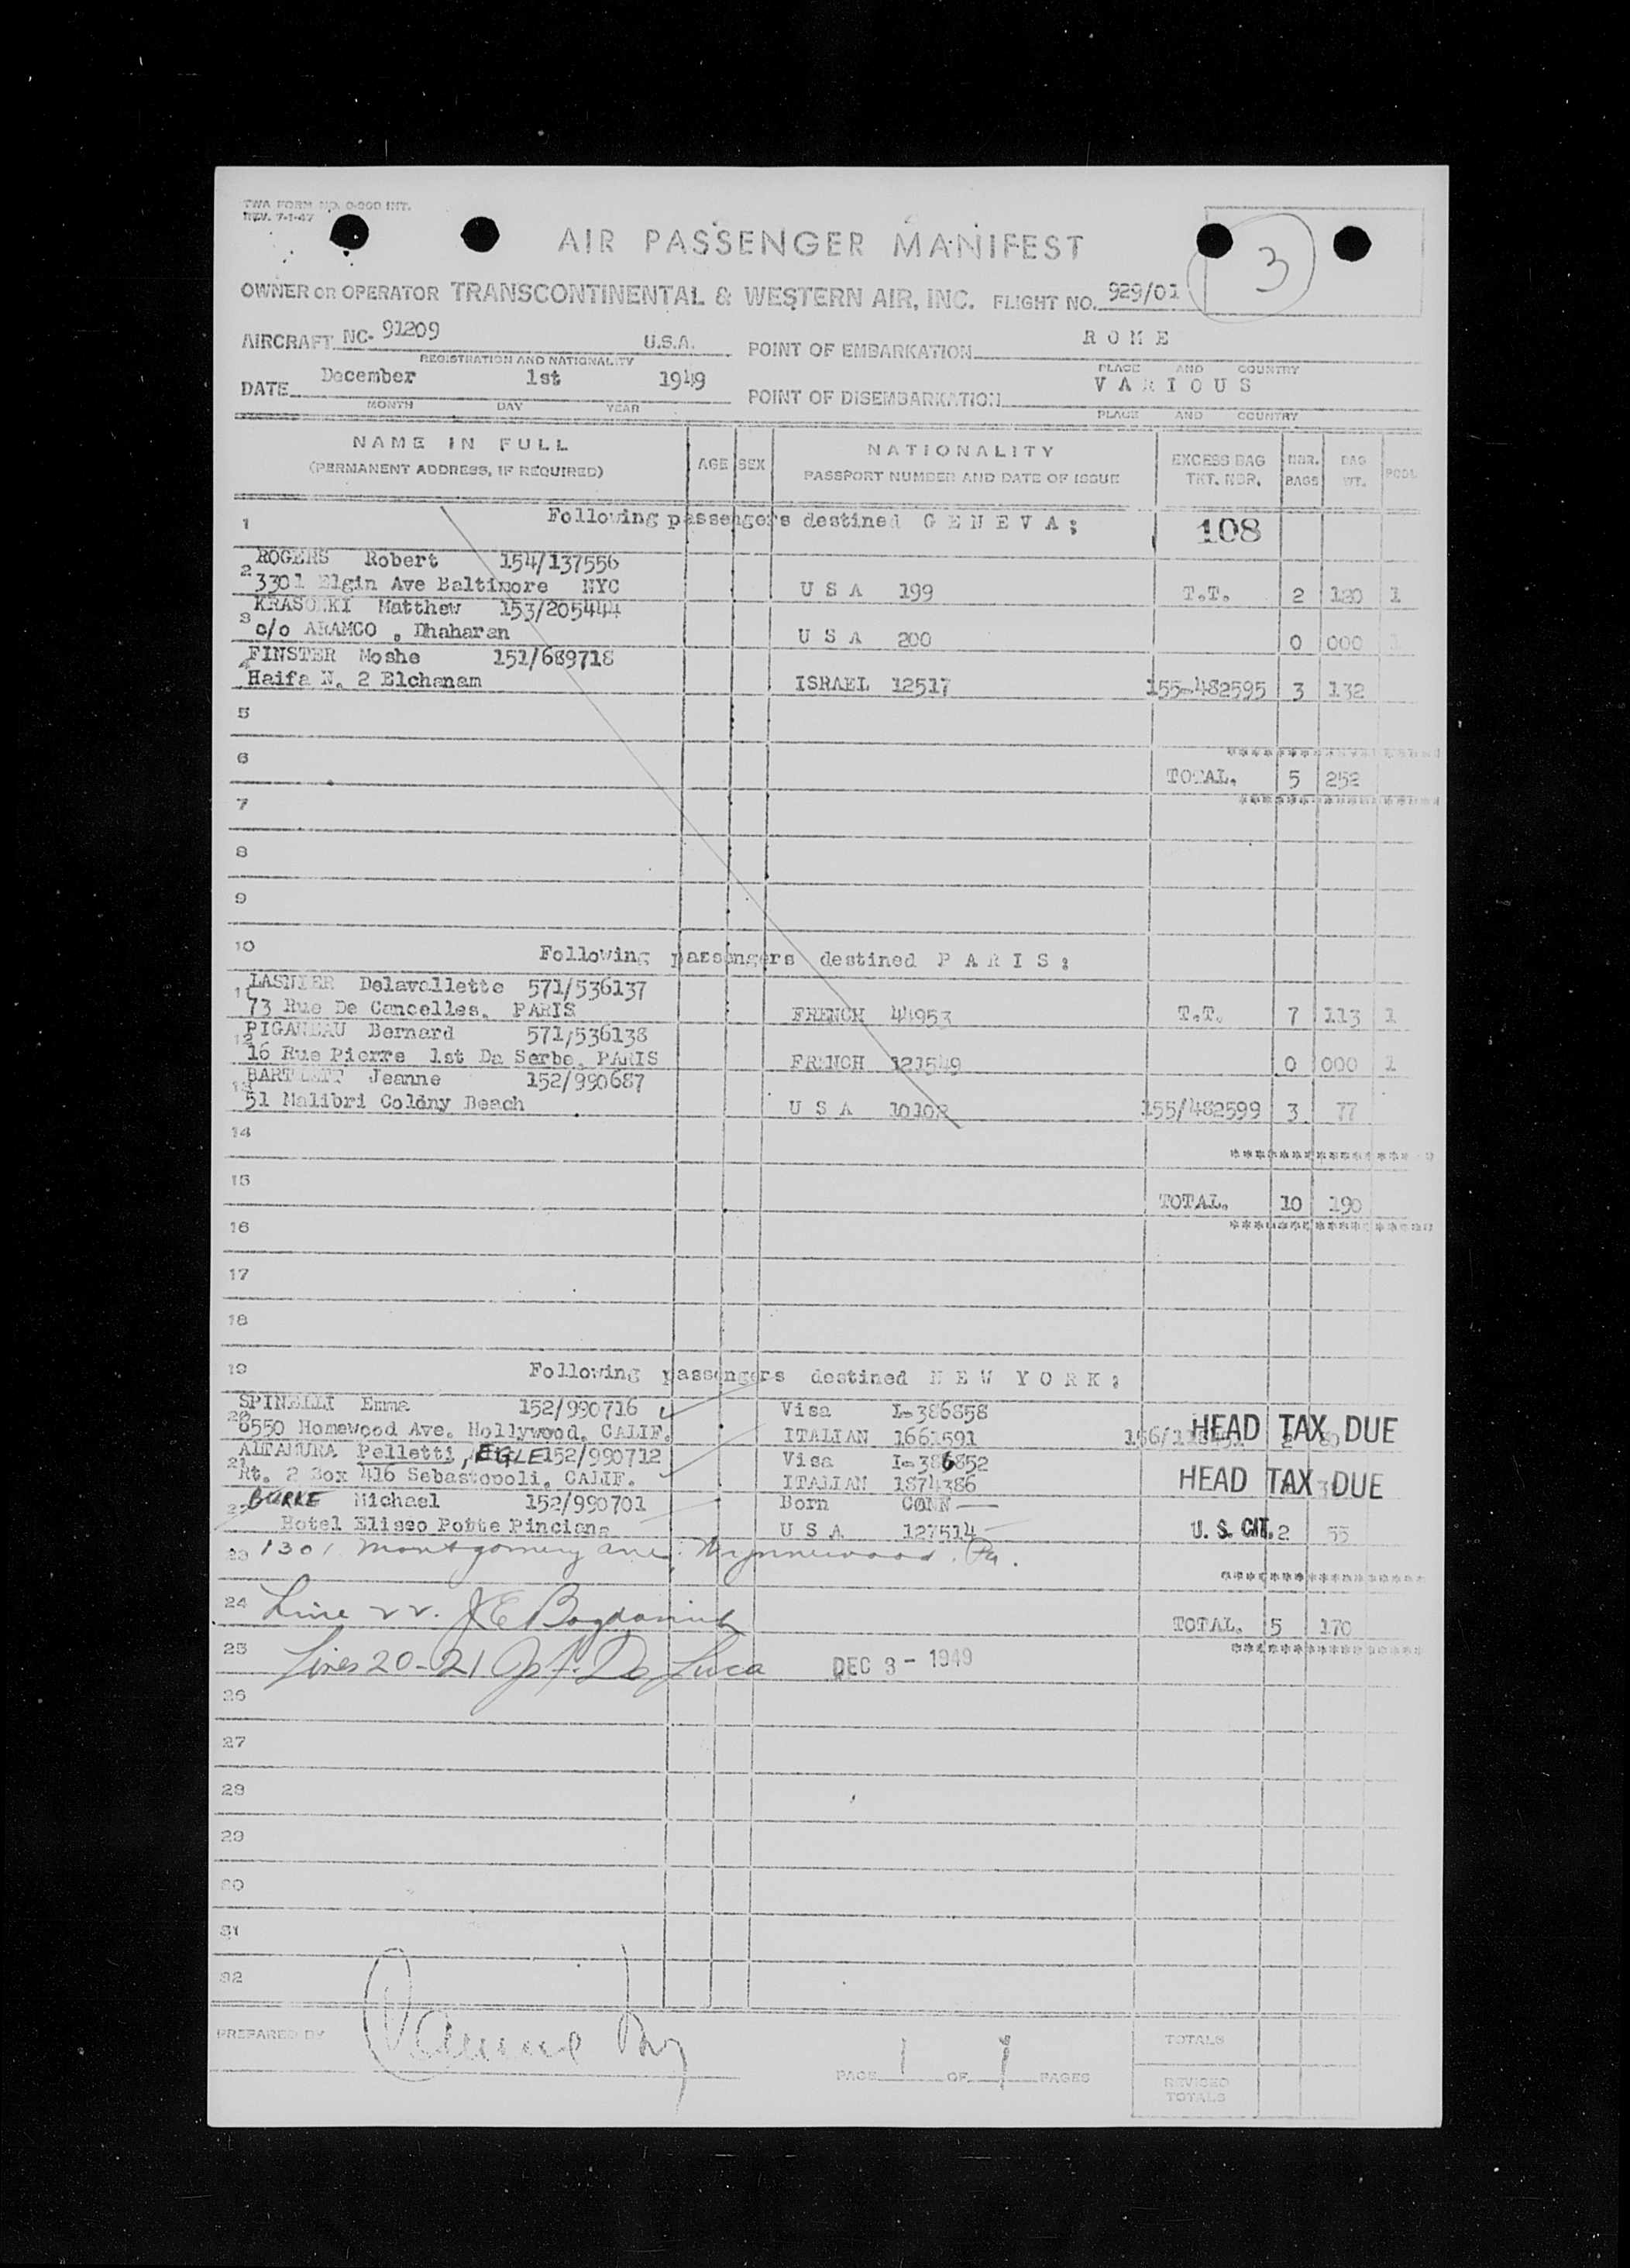 TWA FORM NO. 0-000 INT.
REV. 7-1-47
AIR PASSENGER MANIFEST
3
OWNER OR OPERATOR TRANSCONTINENTAL & WESTERN AIR, INC. FLIGHT NO. 929/01
AIRCRAFT NC- 91209 U.S.A. POINT OF EMBARKATION R O M E
REGISTRATION AND NATIONALITY PLACE AND COUNTRY
DATE December 1st 1949 POINT OF DISEMBARKATION V A R I O U S
MONTH DAY YEAR PLACE AND COUNTRY
NAME IN FULL AGE SEX NATIONALITY EXCESS BAG NBR. BAG POOL
(PERMANENT ADDRESS, IF REQUIRED) PASSPORT NUMBER AND DATE OF ISSUE TKT. NBR. BAGS WT.
1 Following passengers destined G E N E V A : 108
ROGERS Robert 154/137556
2 3301 Elgin Ave Baltimore NYC U S A 199 T.T. 2 120 1
KRASONKI Matthew 153/205444
3 c/o ARAMCO , Dhaharan U S A 200 0 000 1
FINSTER Moshe 151/689718
4 Haifa N. 2 Elchanam ISRAEL 12517 155-482595 3 132
5
6 TOTAL. 5 252
7
8
9
10 Following passengers destined P A R I S :
LASNIER Delavallette 571/536137
11 73 Rue De Cancelles. PARIS FRENCH 44953 T.T. 7 113 1
PIGANEAU Bernard 571/536138
12 16 Rue Pierre 1st Da Serbe. PARIS FRENCH 121549 0 000 1
BARTLETT Jeanne 152/990687
13 51 Malibri Colony Beach U S A 10108 155/482599 3 77
14
15 TOTAL. 10 190
16
17
18
19 Following passengers destined N E W Y O R K :
SPINELLI Emma 152/990716 Visa I-386858
20 6550 Homewood Ave. Hollywood. CALIF. ITALIAN 1661591 HEAD TAX DUE
ALTAMURA Pelletti, EGLE 152/990712 Visa I-386852
21 Rt. 2 Box 416 Sebastopoli. CALIF. ITALIAN 1874386 HEAD TAX DUE
BURKE Michael 152/990701 Born CONN
22 Hotel Eliseo Potte Pinciana U S A 127514 U. S. CIT. 2 55
23 1301 Montgomery ave. Wynnewood. Pa.
24 Line 22. TOTAL. 5 170
25 Lines 20-21 De Luca DEC 3 - 1949
26
27
28
29
30
31
32
PREPARED BY PAGE 1 OF 1 PAGES TOTALS
REVISED
TOTALS